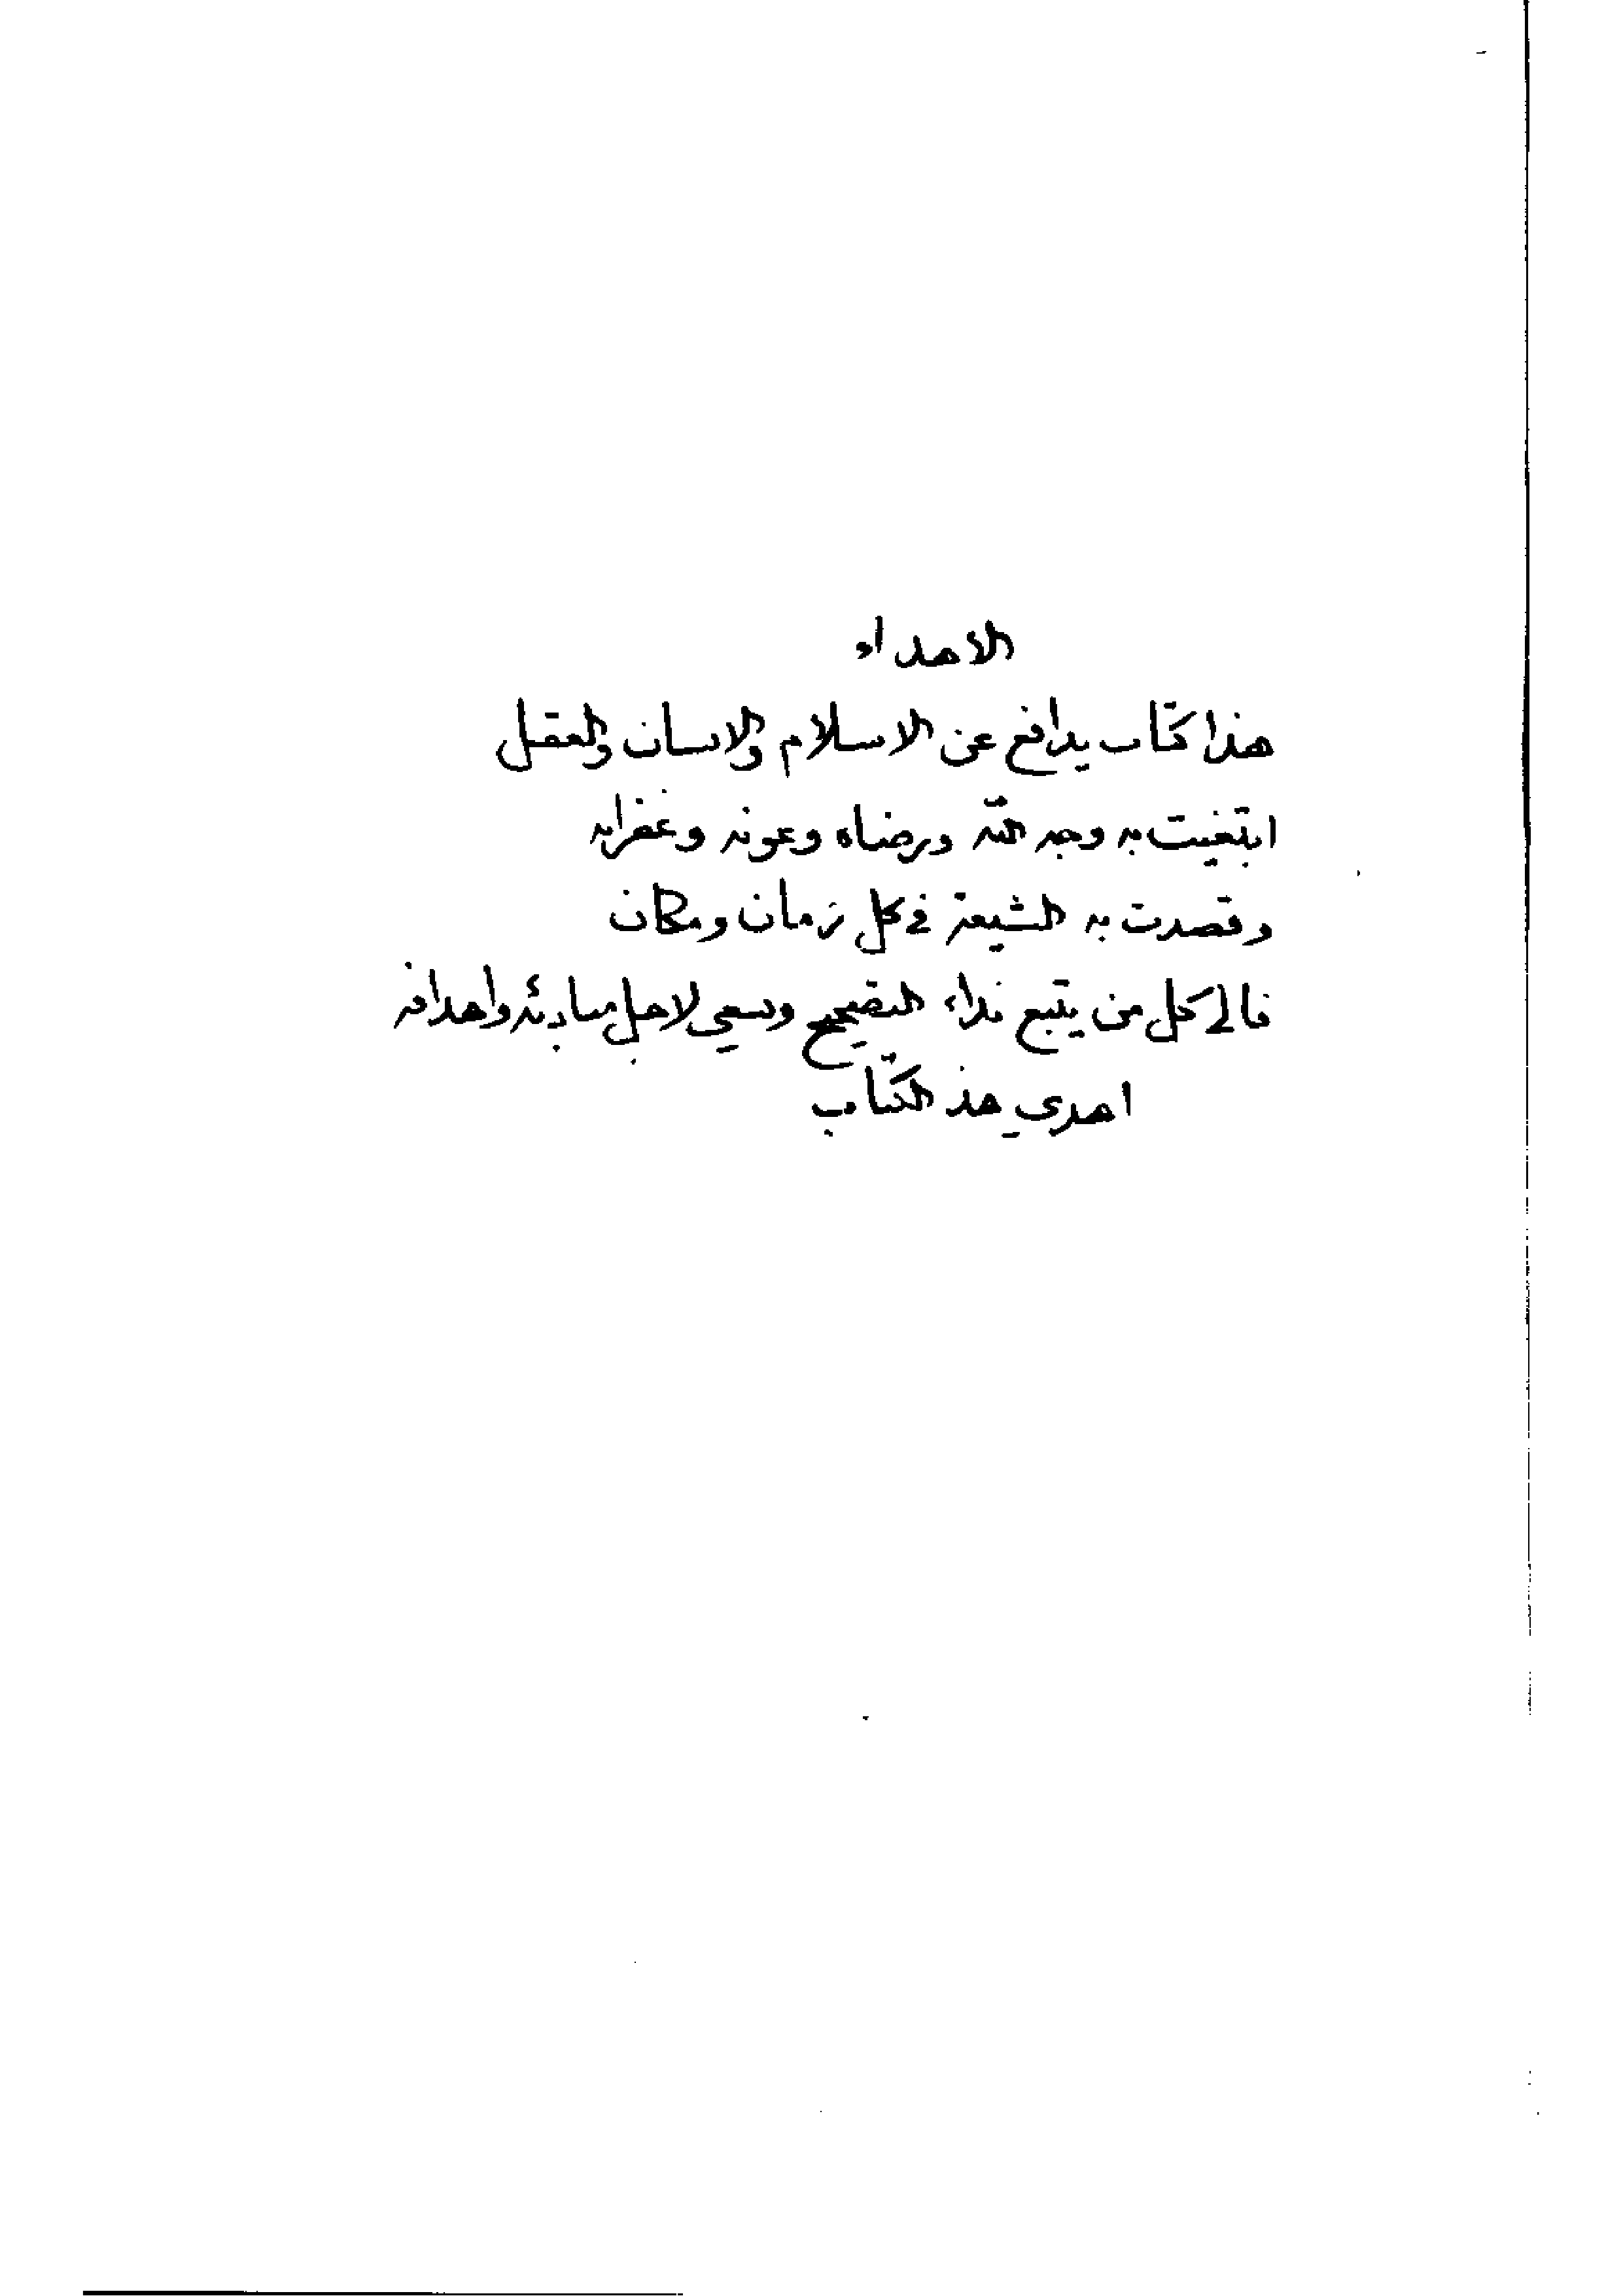 الاهداء
هذا كتاب يدافع عن الاسلام والانسان والعقل
ابتغيت به وجه الله ورضاه وعونه وغفرانه
وقصدت به الشيعة في كل زمان ومكان
فالى كل من يتبع نداء التصحيح وسعى لاجل مبادئه وأهدافه
اهدي هذ الكتاب